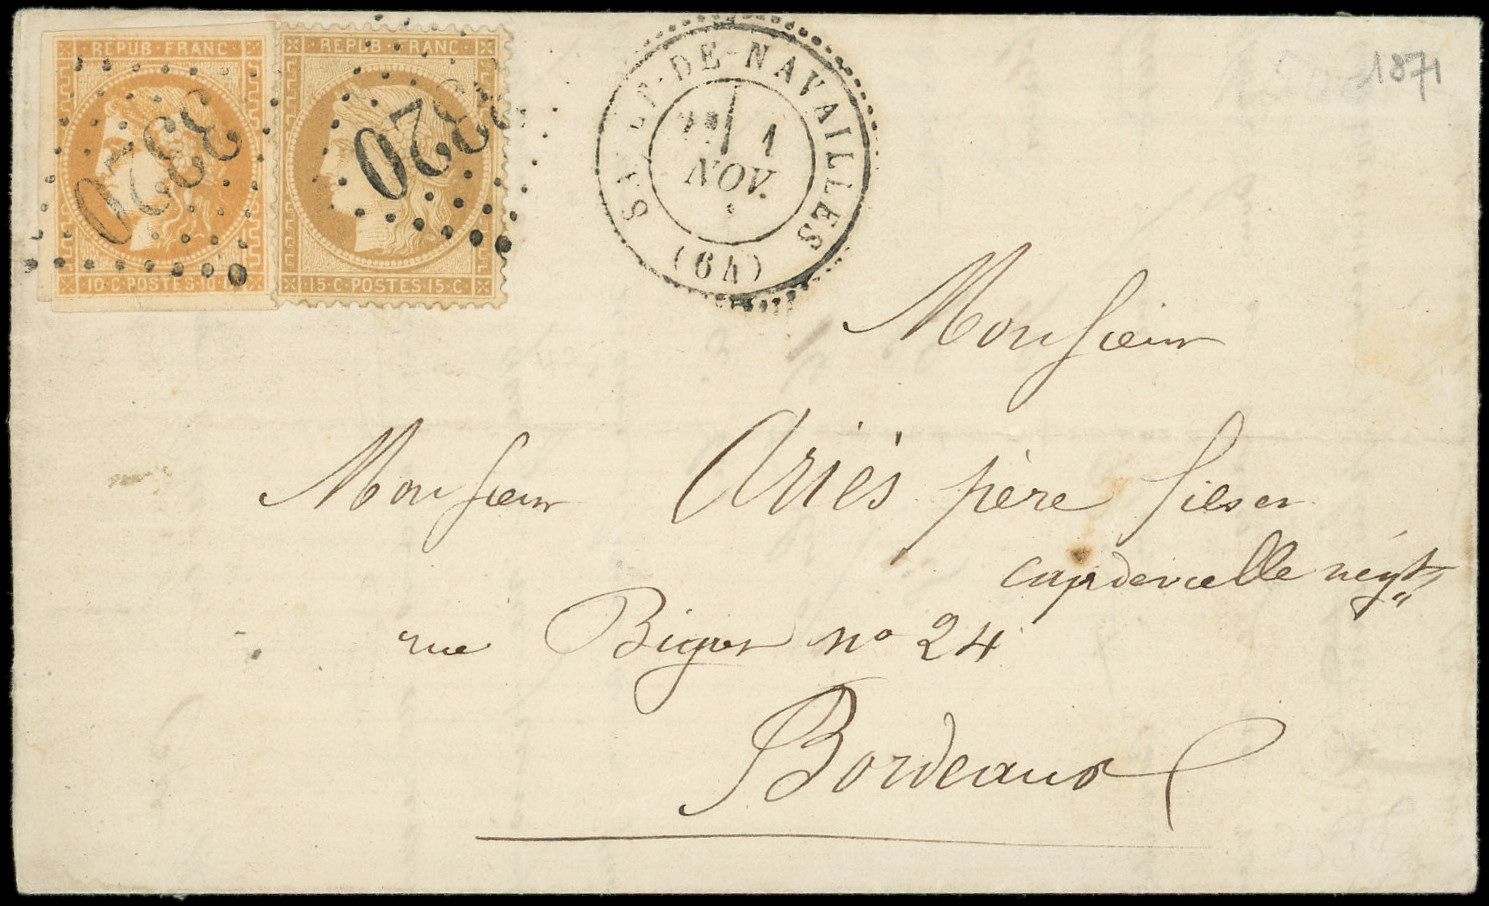 REPUB·FRANC
10·C·POSTES·10·C
3320
REPUB·FRANC·
15·C·POSTES·15·C·
3320
DE-NAVAILLES
1
NOV.
(64)
1871
Monsieur
Monsieur Ariès père fils et
capdevielle négt
rue Bigot no 24
Bordeaux